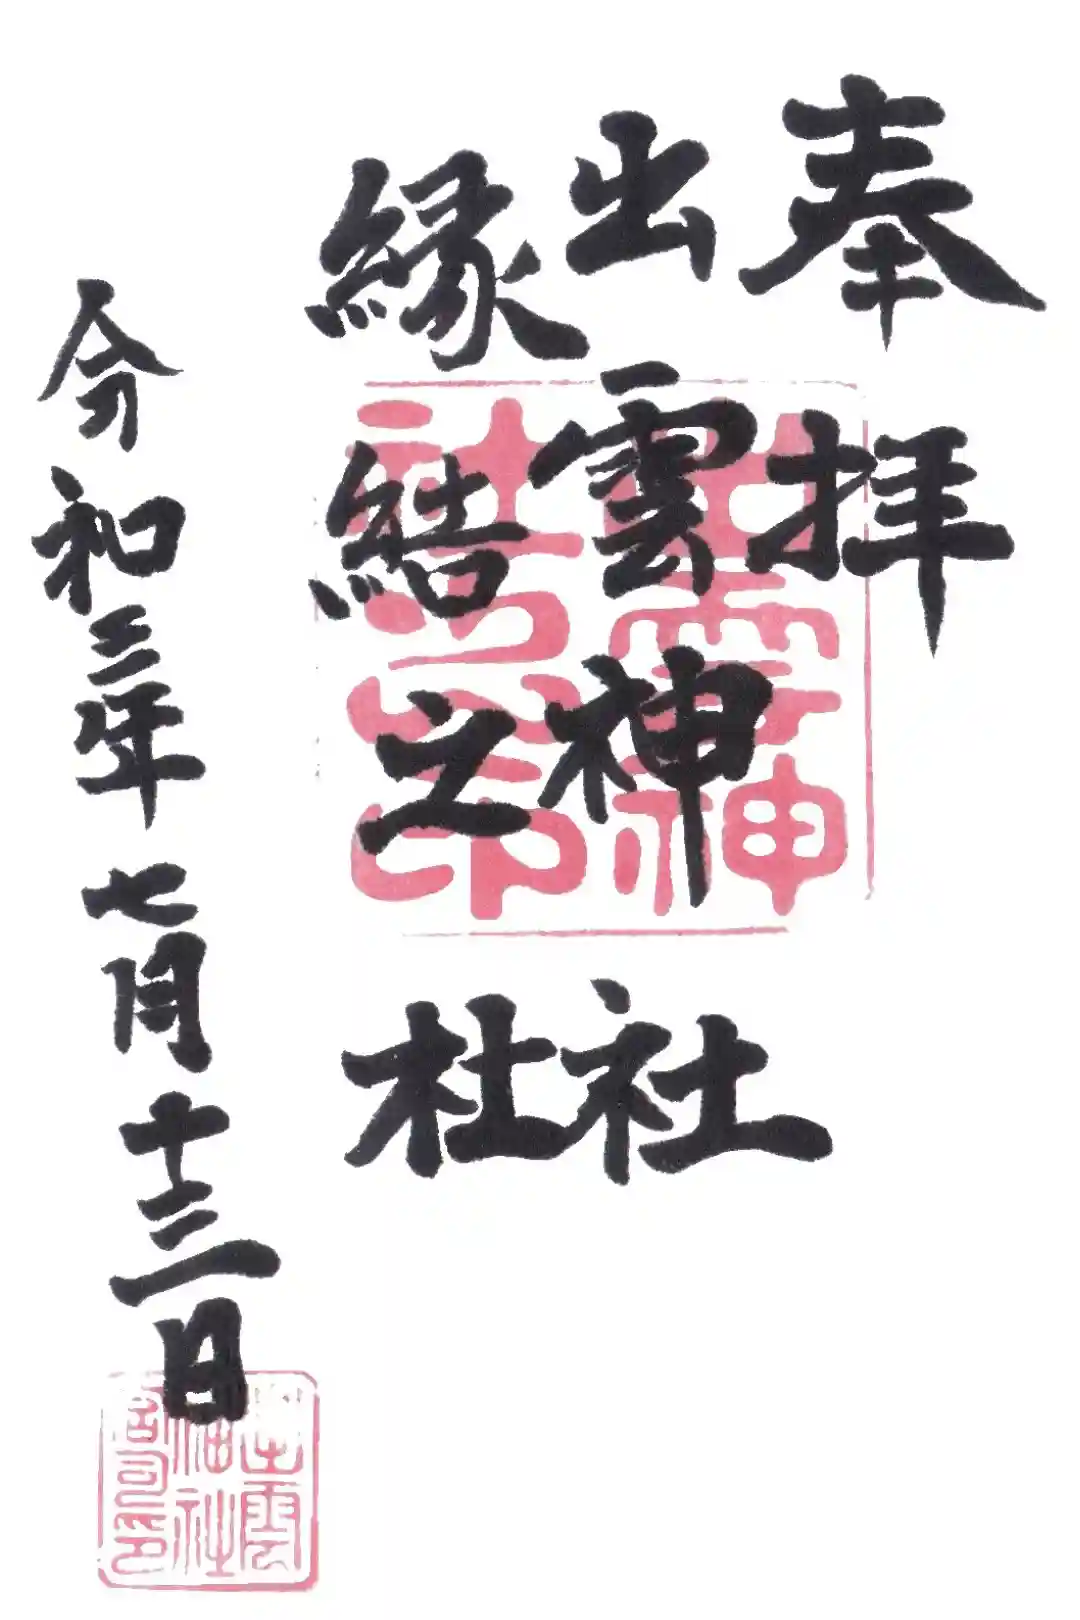 奉拝
出雲神社
縁結之杜
令和三年七月十三日
出雲神社之印